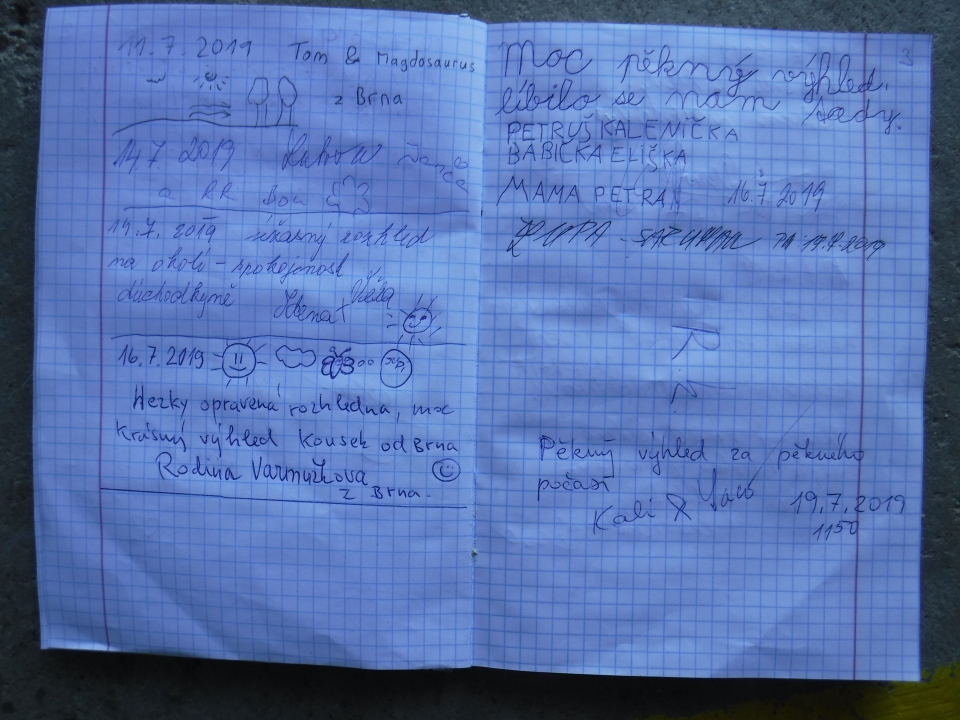 11.7.2019 Tom & Magdosaurus
z Brna
14.7.2019
a
14.7.2019 úžasný rozhled
na okolí - spokojenost
důchodkyně Hana + Věra
16.7.2019
Hezky opravená rozhledna, moc
krásný výhled kousek od Brna
Rodina Varmužkova
z Brna.
3
Moc pěkný výhled.
líbilo se nám tady.
PETRUŠKA LENIČKA
BABIČKA ELIŠKA
MAMA PETRA 16.7 2019
R
Pěkný výhled za pěkného
počasí
Kali &
19.7.2019
1150